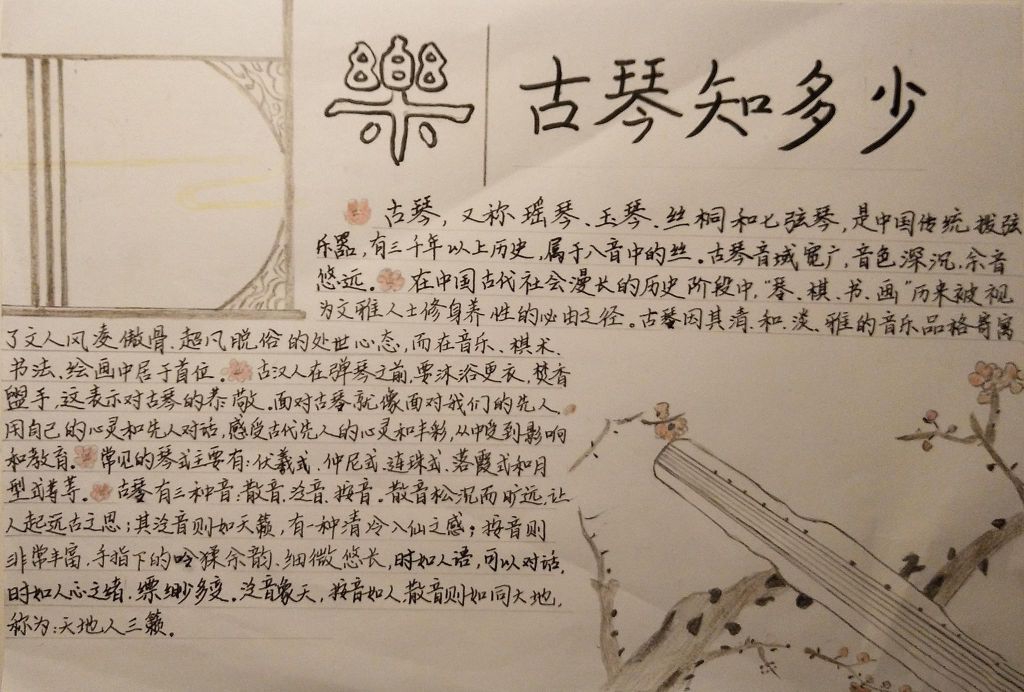 樂
古琴知多少
古琴，又称瑶琴、玉琴、丝桐和七弦琴，是中国传统拨弦
乐器，有三千年以上历史，属于八音中的丝。古琴音域宽广，音色深沉，余音
悠远。在中国古代社会漫长的历史阶段中，“琴、棋、书、画”历来被视
为文雅人士修身养性的必由之径。古琴因其清、和、淡、雅的音乐品格寄寓
了文人风凌傲骨、超凡脱俗的处世心态，而在音乐、棋术、
书法、绘画中居于首位。古汉人在弹琴之前，要沐浴更衣，焚香
盥手，这表示对古琴的恭敬。面对古琴就像面对我们的先人，
用自己的心灵和先人对话，感受古代先人的心灵和丰彩，从中受到影响
和教育。常见的琴式主要有：伏羲式、仲尼式、连珠式、落霞式和月
型式等等。古琴有三种音：散音、泛音、按音。散音松沉而旷远，让
人起远古之思；其泛音则如天籁，有一种清冷入仙之感；按音则
非常丰富，手指下的吟猱余韵、细微悠长，时如人语，可以对话，
时如人心之绪，缥缈多变。泛音象天，按音如人，散音则如同大地，
称为：天地人三籁。